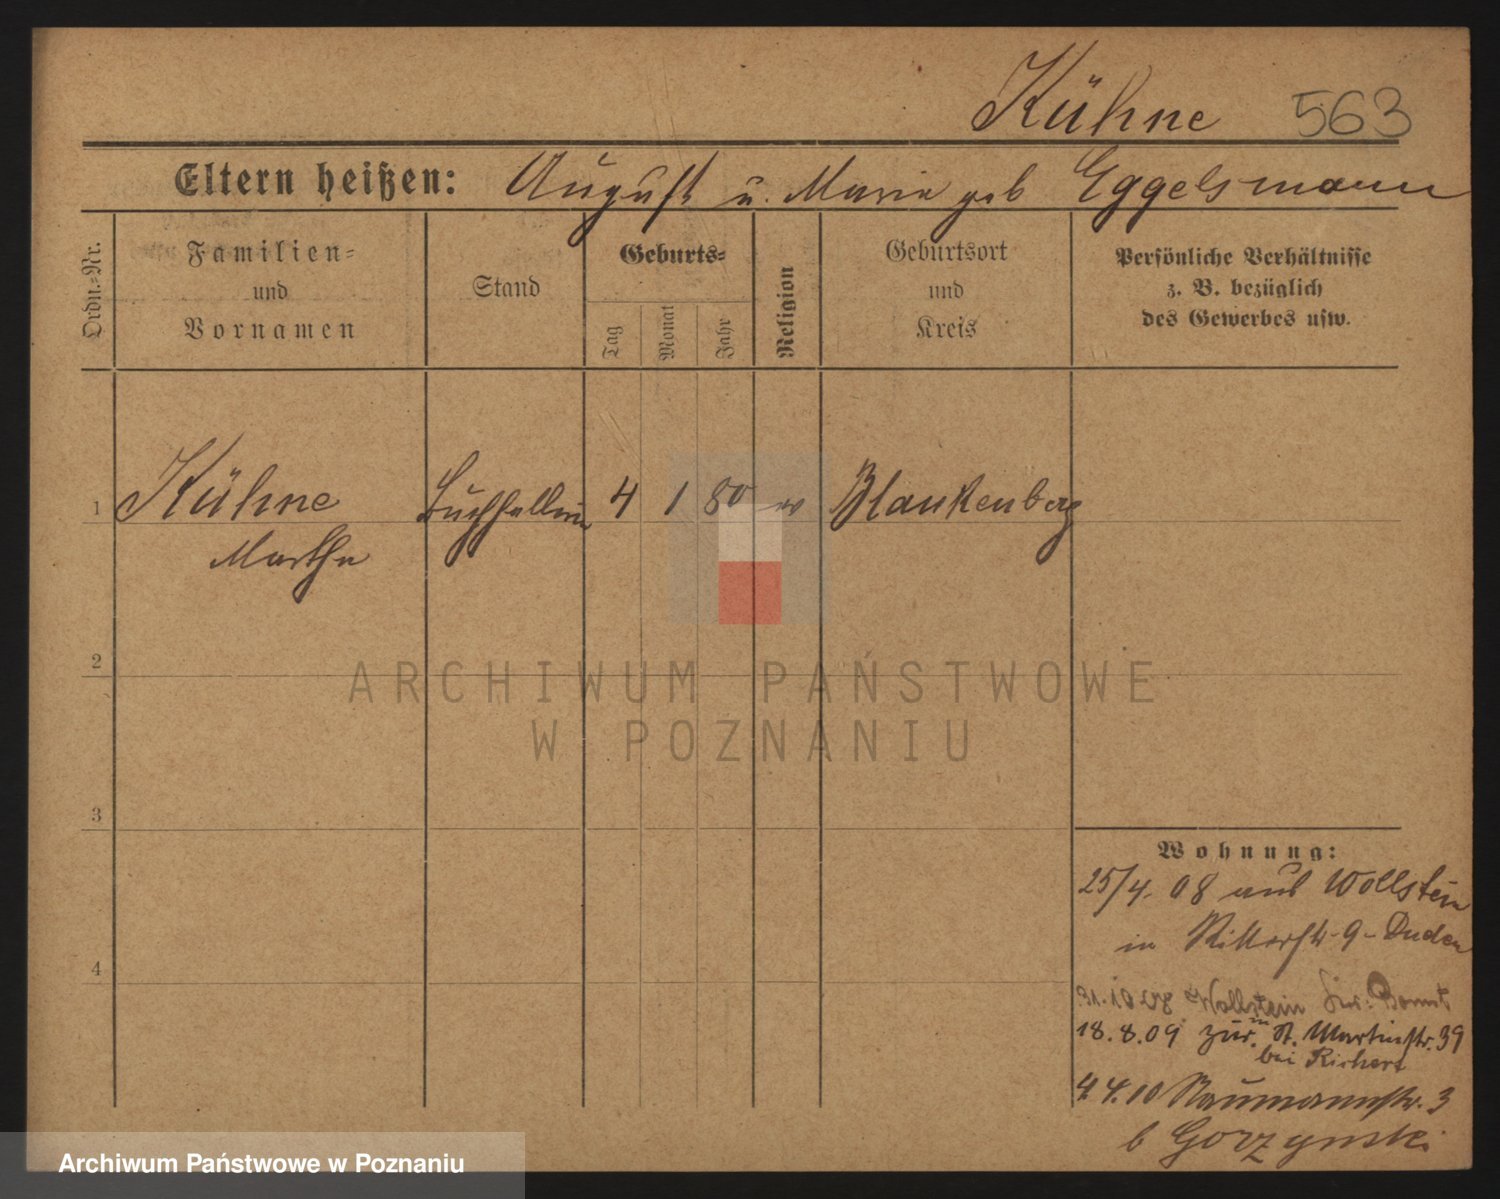 Kühne 563
Eltern heißen: August u. Maria geb Eggelsmann
Ordn.-Nr.
Familien-
und
Vornamen
Stand
Geburts-
Tag
Monat
Jahr
Religion
Geburtsort
und
Kreis
Persönliche Verhältnisse
z. B. bezüglich
des Gewerbes usw.
1 Kühne 4 1 80 ev Blankenberg
Martha
2
3
4
Wohnung:
25/4. 08 aus Wollstein
in Ritterstr. 9 - Duden
31.10.08 Wollstein Kr: Bomst
18.8.09. zur. in St. Martinstr. 39
bei Richert
4.4.10 Naumannstr. 3
b Gorzynski.
ARCHIWUM PAŃSTWOWE
W POZNANIU
Archiwum Państwowe w Poznaniu